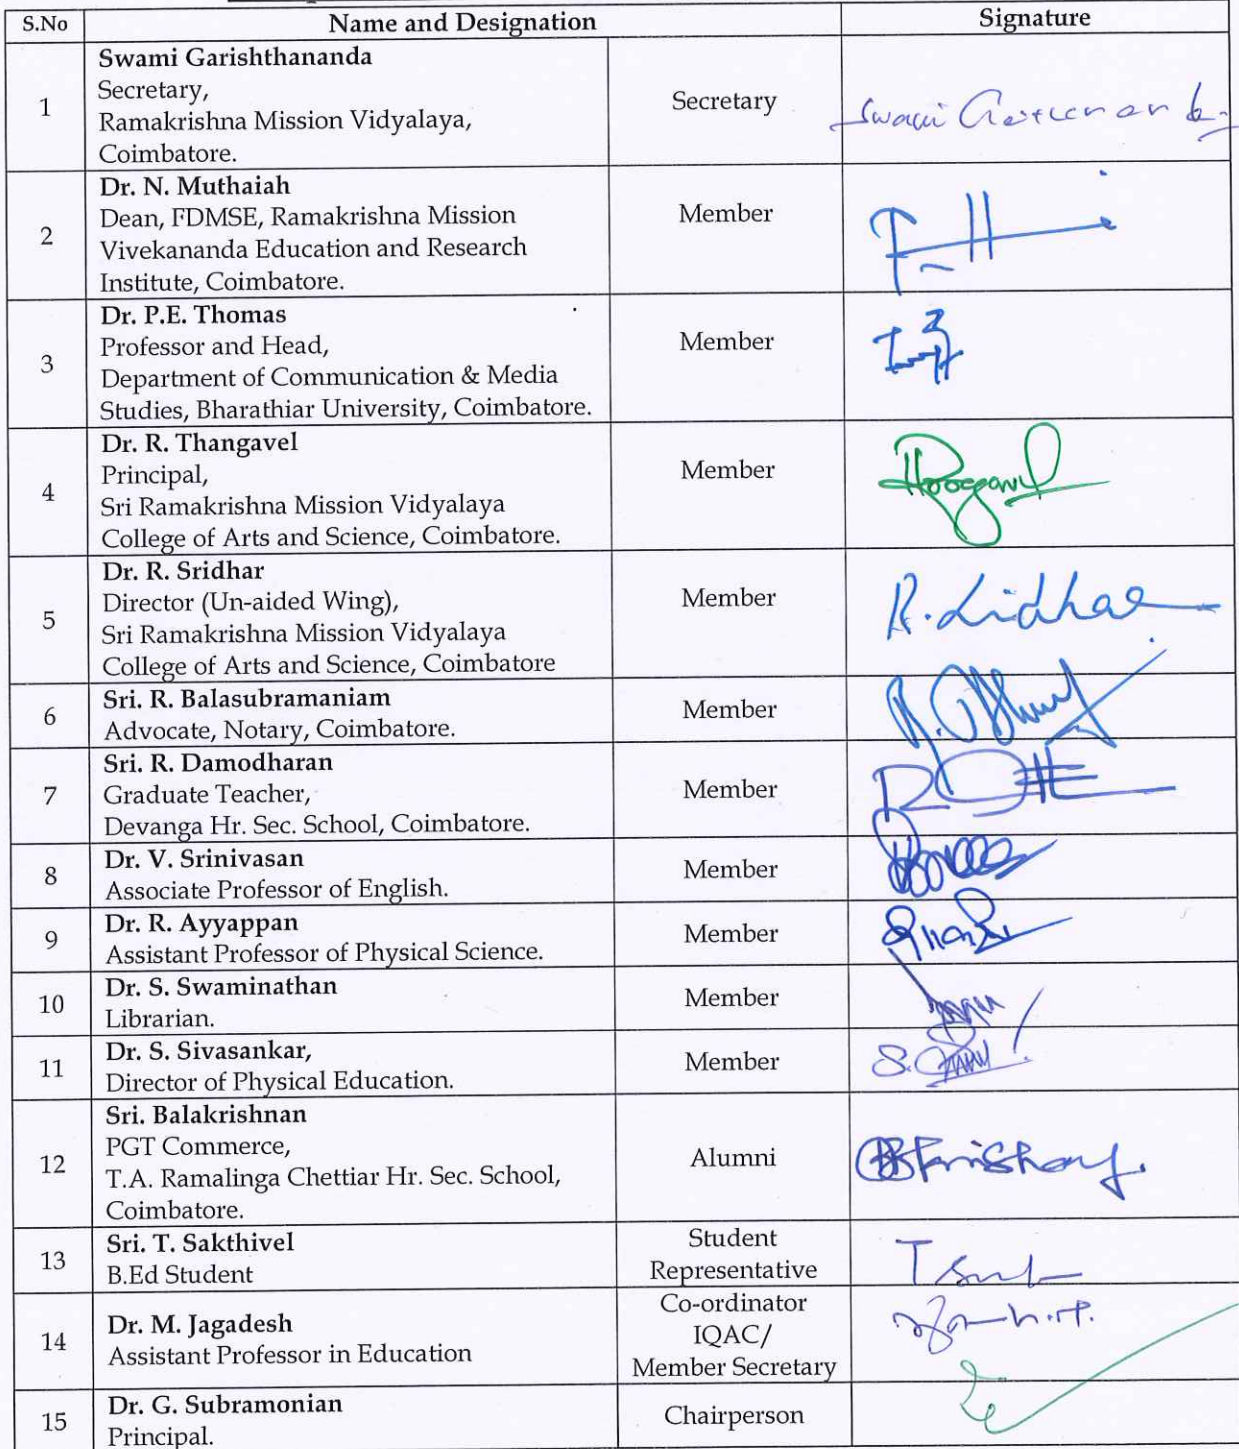 S.No Name and Designation Signature
1
Swami Garishthananda
Secretary,
Ramakrishna Mission Vidyalaya,
Coimbatore.
Secretary
Swami
2
Dr. N. Muthaiah
Dean, FDMSE, Ramakrishna Mission
Vivekananda Education and Research
Institute, Coimbatore.
Member
3
Dr. P.E. Thomas
Professor and Head,
Department of Communication & Media
Studies, Bharathiar University, Coimbatore.
Member
4
Dr. R. Thangavel
Principal,
Sri Ramakrishna Mission Vidyalaya
College of Arts and Science, Coimbatore.
Member
5
Dr. R. Sridhar
Director (Un-aided Wing),
Sri Ramakrishna Mission Vidyalaya
College of Arts and Science, Coimbatore
Member
6
Sri. R. Balasubramaniam
Advocate, Notary, Coimbatore.
Member
7
Sri. R. Damodharan
Graduate Teacher,
Devanga Hr. Sec. School, Coimbatore.
Member
8
Dr. V. Srinivasan
Associate Professor of English.
Member
9
Dr. R. Ayyappan
Assistant Professor of Physical Science.
Member
10
Dr. S. Swaminathan
Librarian.
Member
11
Dr. S. Sivasankar,
Director of Physical Education.
Member
12
Sri. Balakrishnan
PGT Commerce,
T.A. Ramalinga Chettiar Hr. Sec. School,
Coimbatore.
Alumni
13
Sri. T. Sakthivel
B.Ed Student
Student
Representative
14
Dr. M. Jagadesh
Assistant Professor in Education
Co-ordinator
IQAC/
Member Secretary
15
Dr. G. Subramonian
Principal.
Chairperson